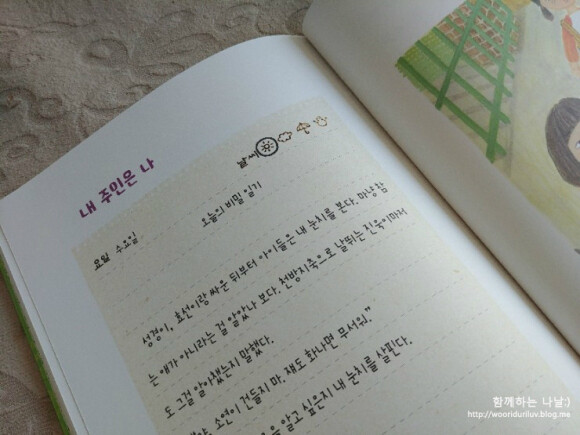 내 주인은 나
날씨
오늘의 비밀 일기
요일 수요일
성경이, 효선이랑 싸운 뒤부터 아이들은 내 눈치를 본다. 마냥 참
는 애가 아니라는 걸 알았나 보다. 천방지축으로 날뛰는 진욱이마저
도 그걸 알아챘는지 말했다.
소연이 건들지 마. 쟤도 화나면 무서워."
을 알고 싶은지 내 눈치를 살핀다.
함께하는 나날:)
http://wooriduriluv.blog.me